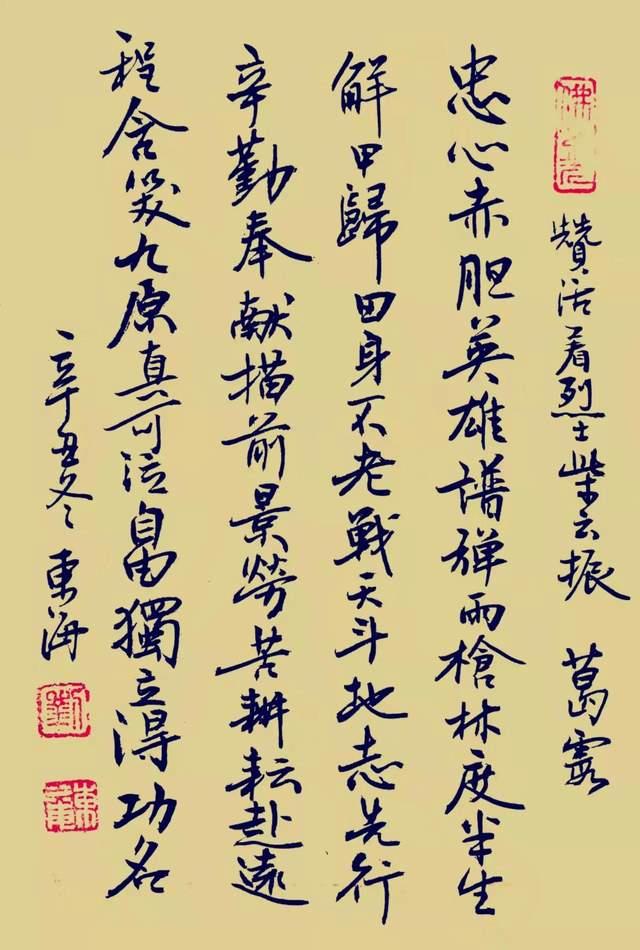 贊活着烈士柴云振 葛霞
忠心赤胆英雄譜彈雨槍林度半生
解甲歸田身不老戰天斗地志先行
辛勤奉献描前景勞苦耕耘赴遠
程含笑九原真可泣自由獨立得功名
辛丑冬 東海